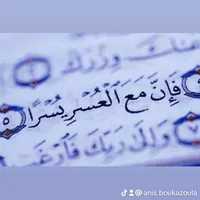 عَنكَ وِزْرَكَ
فَإِنَّ مَعَ ٱلْعُسْرِ يُسْرًا ٥
٧ وَإِلَىٰ رَبِّكَ فَٱرْغَب
@anis.boukazoula